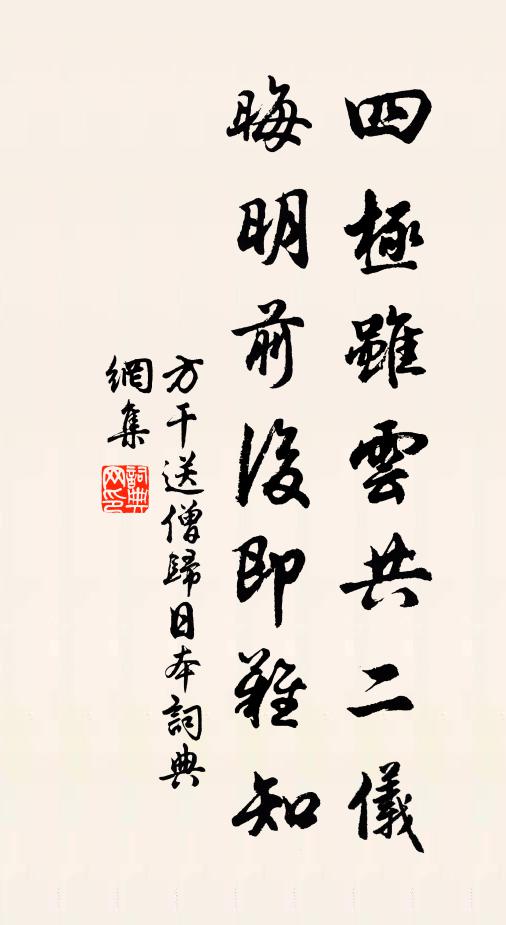 四極雖雲共二儀
晦明前後即難知
方干送僧歸日本詞典
網集
詞典
网印